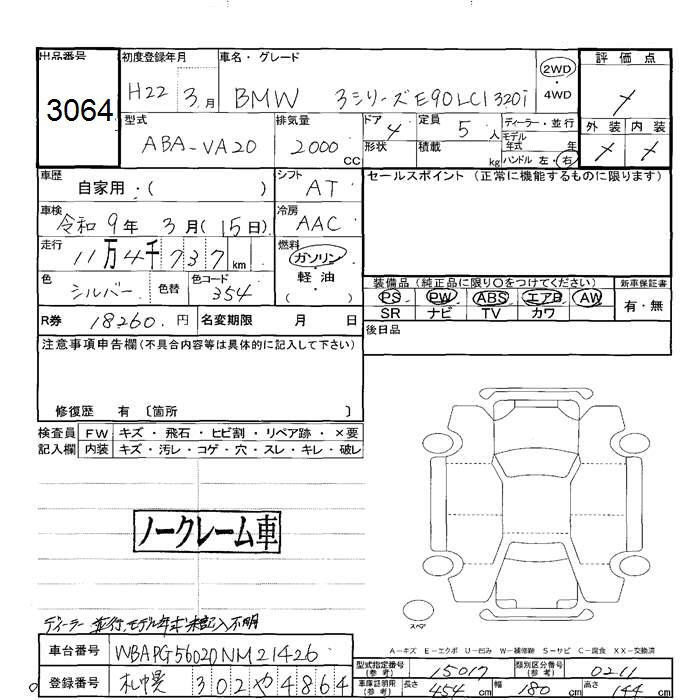 出品番号 初度登録年月 車名・グレード 評価点
3064 H22 3月 BMW 3シリーズE90LCI 320i 2WD・4WD
外装 内装
型式 排気量 ドア 定員 ディーラー・並行
ABA-VA20 2000CC 4 5人 モデル年式 年
形状 積載 kg ハンドル 左・右
車歴 シフト セールスポイント (正常に機能するものに限ります)
自家用・( ) AT
車検 冷房
令和9年3月(15日) AAC
走行 燃料
11万4千737km ガソリン・軽油・( )
色 色替 色コード 装備品(純正品に限り○をつけてください) 新車保証書
シルバー 354 PS PW ABS エアB AW 有・無
SR ナビ TV カワ
R券 18260円 名変期限 月 日 後日品
注意事項申告欄(不具合内容等は具体的に記入して下さい)
修復歴 有 〔箇所 〕
検査員 FW キズ・飛石・ヒビ割・リペア跡・×要
記入欄 内装 キズ・汚レ・コゲ・穴・スレ・キレ・破レ
ノークレーム車
スペア
A-キズ E-エクボ U-凹み W-補修跡 S-サビ C-腐食 XX-交換済
ディーラー並行、モデル年式未記入不明
車台番号 WBAPG56020NM21426 型式指定番号(参考) 15017 類別区分番号(参考) 0211
登録番号 札幌 302や4864 車庫証明用(参考) 長さ 454cm 幅 180cm 高さ 144cm